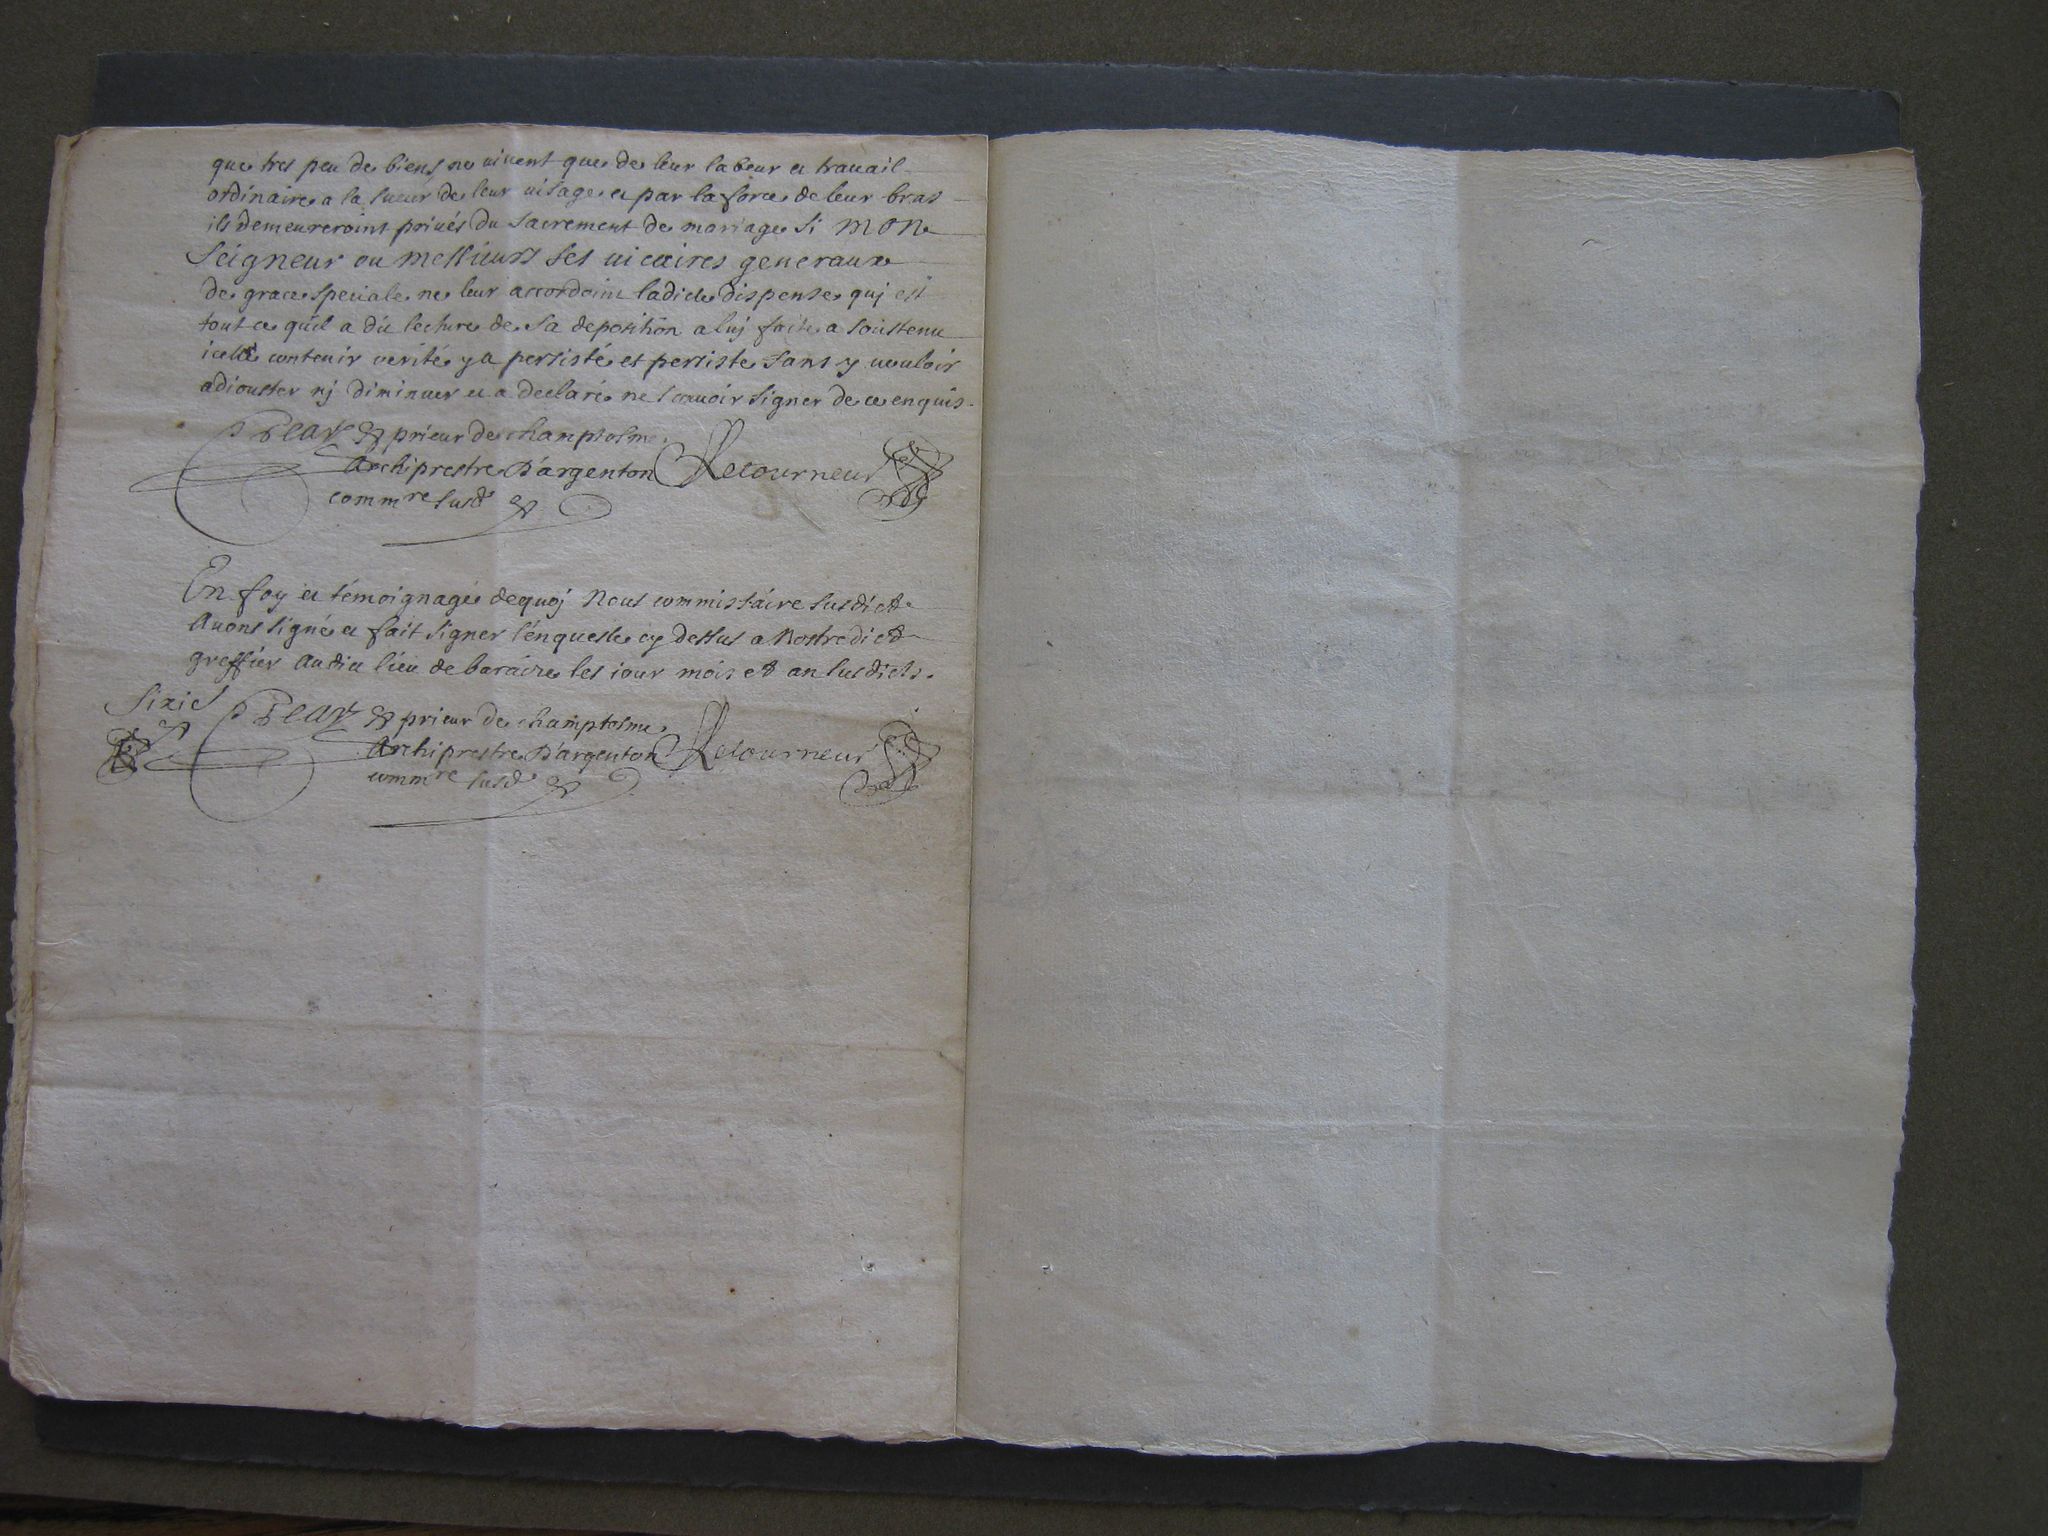 que tres peu de biens ne uiuent que de leur labeur et trauail
ordinaire a la sueur de leur uisage et par la force de leur bras
ils demeureroint priués du sacrement de mariage si MON
Seigneur ou messieurs ses uicaires generaux
de grace speciale ne leur accordoint ladicte dispense quj est
tout ce quil a dit lecture de sa deposition a luj faite a soustenu
icelle contenir verité y a persisté et persiste sans y uouloir
adiouster nj diminuer et a declaré ne scauoir signer de ce enquis
prieur de champtosme
Archiprestre D'argenton Letourneur
commre susd
En foy et témoignage dequoj Nous commissaire susdict
Auons signé et fait signer l'enqueste cy dessus a Nostredict
greffier Audit lieu de baraire les iour mois et an susdicts.
prieur de champtosme
Archiprestre D'argenton Letourneur
commre susd